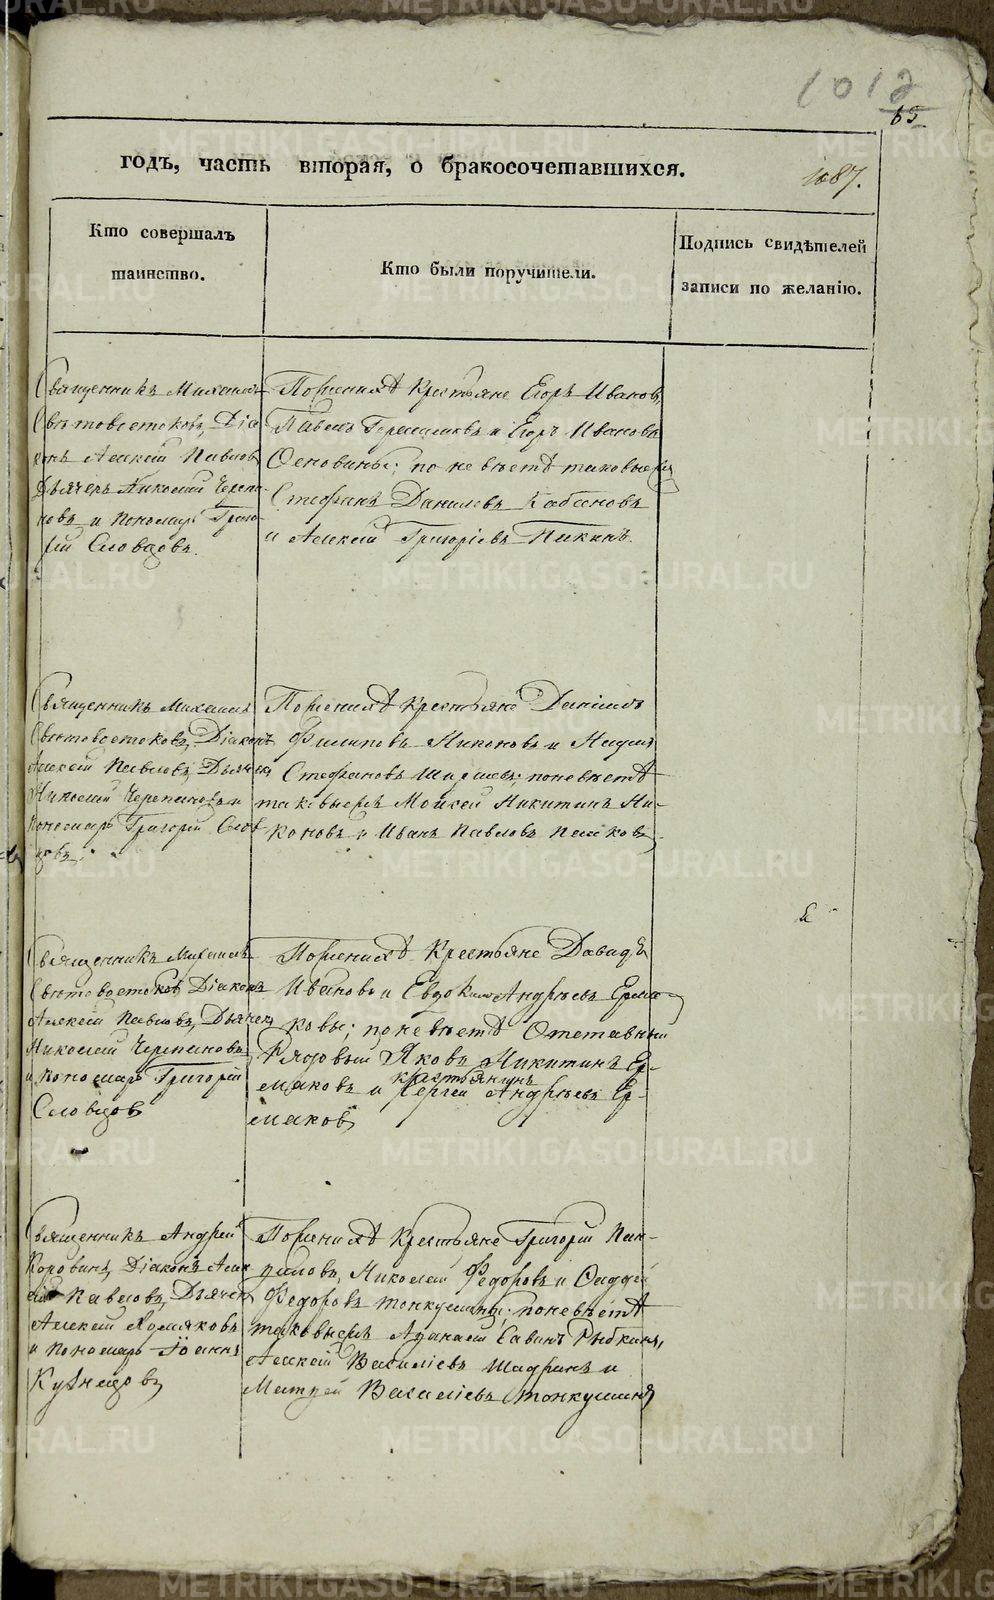 1012
65
годъ, часть вторая, о бракосочетавшихся.
1087.
Кто совершалъ
таинство.
Кто были поручители.
Подпись свидѣтелей
записи по желанію.
Священникъ Михаилъ
Свѣтовостоковъ, Діа
конъ Алексѣй Павловъ
Дьячекъ Николай Черепа-
новъ и Пономарь Григо-
рій Словцовъ.
По женихѣ Крестьяне Егоръ Ивановъ,
Павелъ Герасимовъ и Егоръ Ивановъ
Основины; по невѣстѣ таковыежъ
Стефанъ Даниловъ Кабановъ
и Алексѣй Григорьевъ Пикинъ.
Священникъ Михаилъ
Свѣтовостоковъ, Діаконъ
Алексѣй Павловъ, Дьячекъ
Николай Черепановъ и
Пономарь Григорій Слов
цовъ.
По женихѣ Крестьяне Даніилъ
Филиповъ Никоновъ и
Стефановъ по невѣстѣ
таковыежъ Моисей Никитинъ Ни-
коновъ и Иванъ Павловъ
Священникъ Михаилъ
Свѣтовостоковъ Діаконъ
Алексѣй Павловъ, Дьячекъ
Николай Черепановъ
и Пономарь Григорій
Словцовъ
По женихѣ Крестьяне Давидъ
Ивановъ и Евдокимъ Андреевъ Ерма-
ковы; по невѣстѣ Отставный
Рядовый Яковъ Никитинъ Ер-
маковъ и крестьянинъ Сергей Андреевъ Ер-
маковъ
Священникъ Андрей
Коровинъ, Діаконъ Алек
сѣй Павловъ, Дьячекъ
Алексѣй Хомяковъ
и Пономарь Іоаннъ
Кузнецовъ
По женихѣ Крестьяне Григорій Пан-
филовъ, Николай Федоровъ и Фаддей
Федоровъ Тонкушины; по невѣстѣ
таковыежъ Афанасій Савинъ Рыбкинъ,
Алексѣй Васильевъ Шадринъ и
Матвѣй Васильевъ Тонкушинъ
METRIKI.GASO-URAL.RU